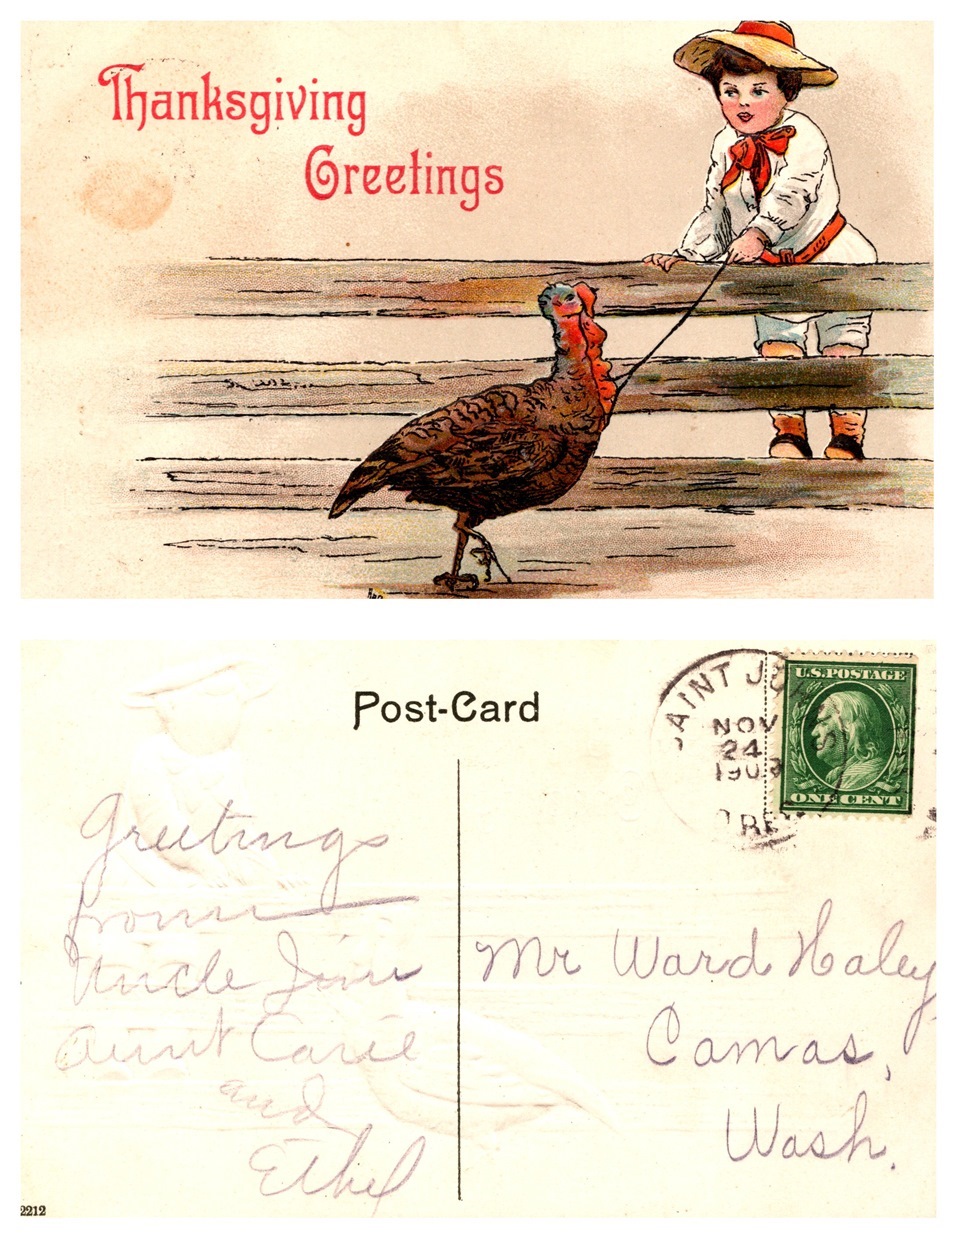 Thanksgiving
Greetings
Post-Card
AINT J
NOV
24
U.S.POSTAGE
ONE CENT
Greetings
from
Uncle Jim
Aunt Carie
and
Ethel
Mr Ward Haley
Camas,
Wash.
2212